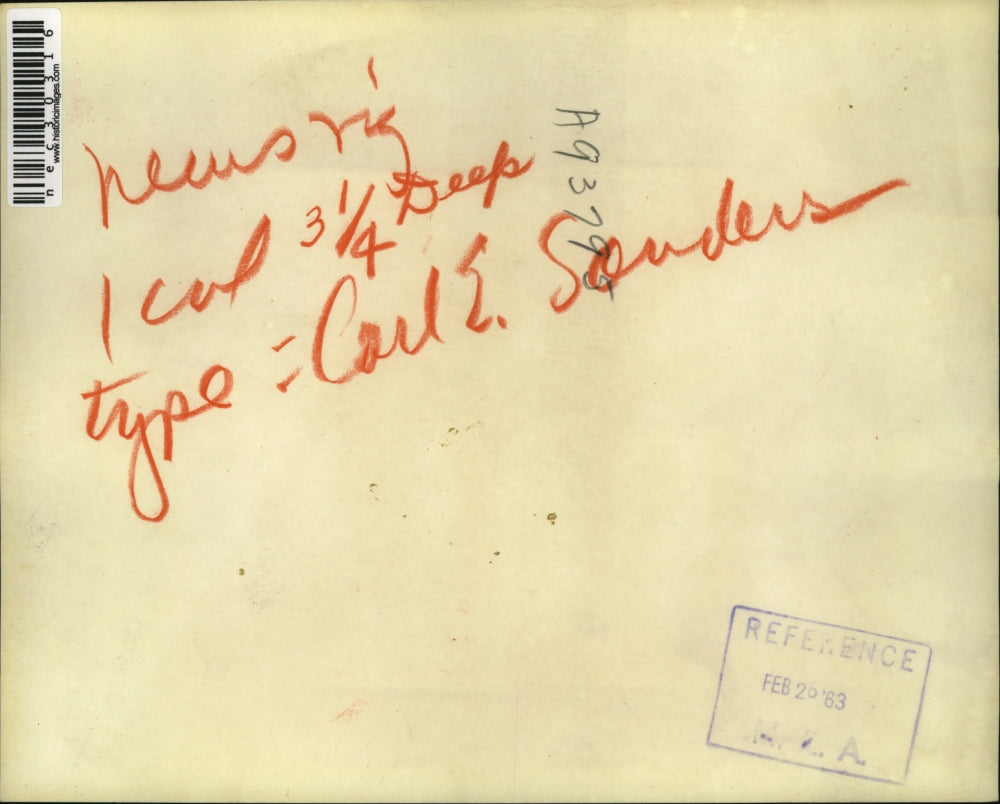 nec30316
www.historicimages.com
news rig
1 col 3 1/4 Deep
type = Carl E. Sanders
REFERENCE
FEB 26 '63
N. E. A.